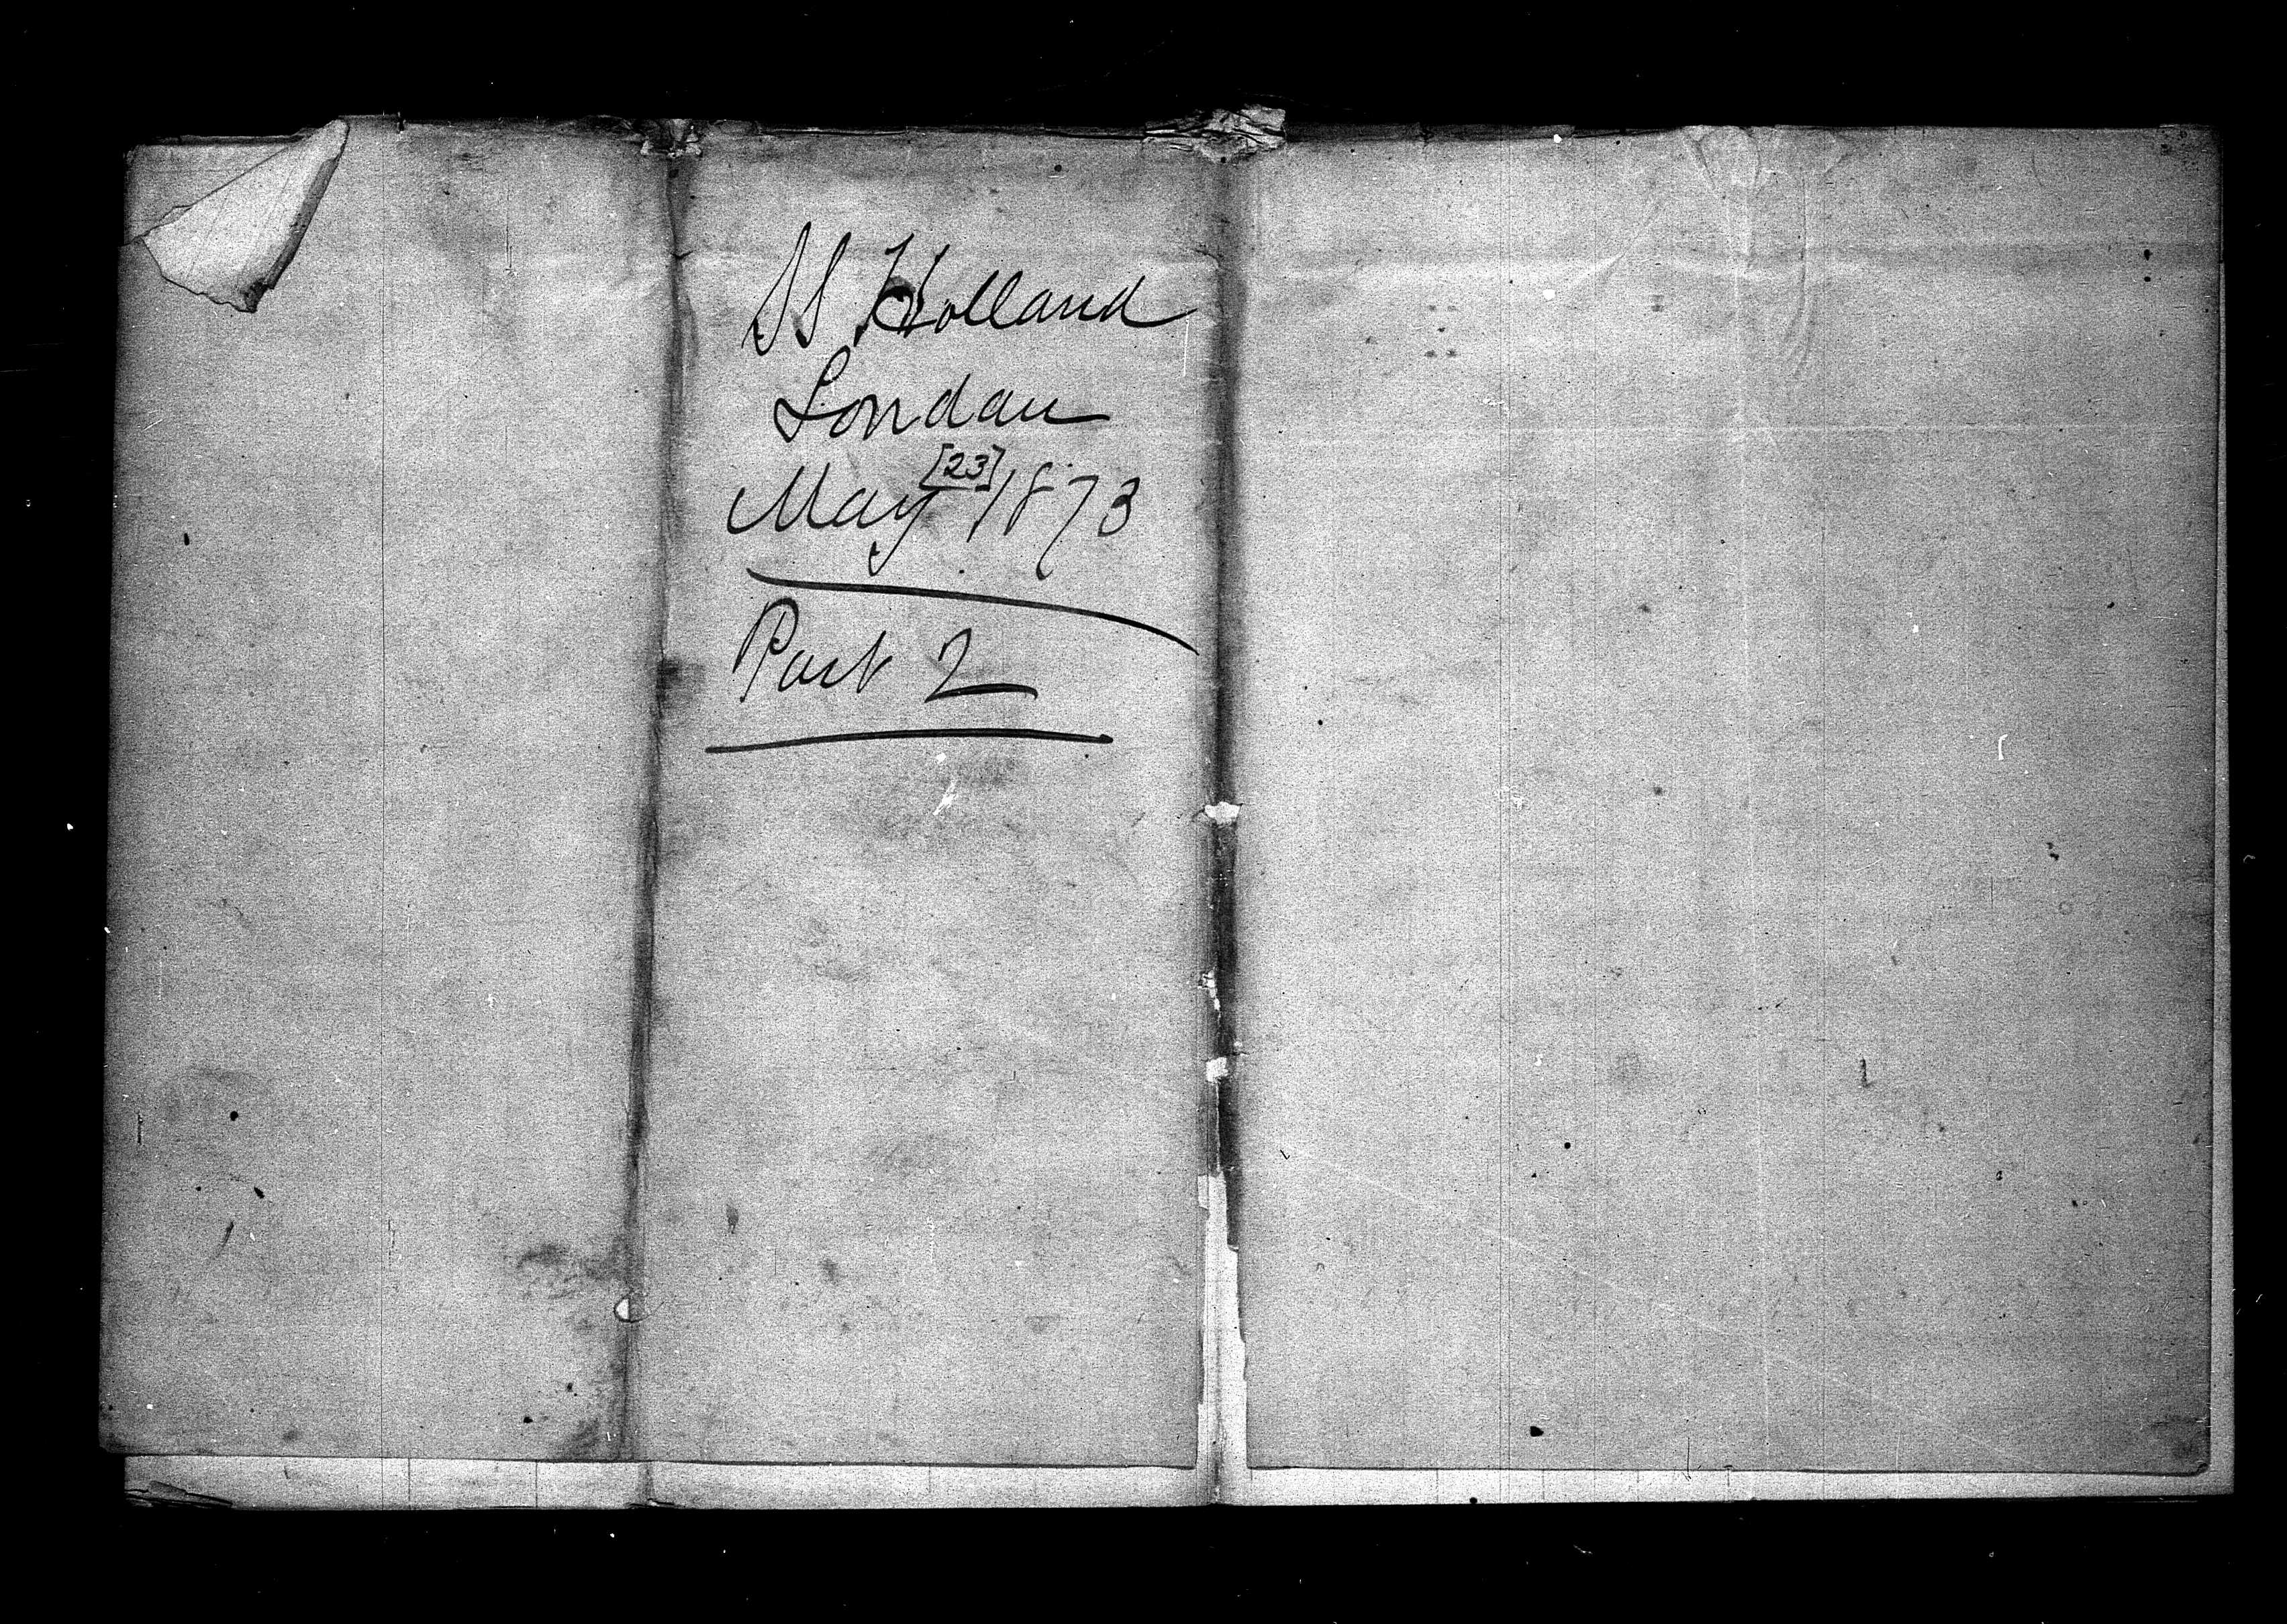 SS Holland
London
May [23] 1873
Part 2